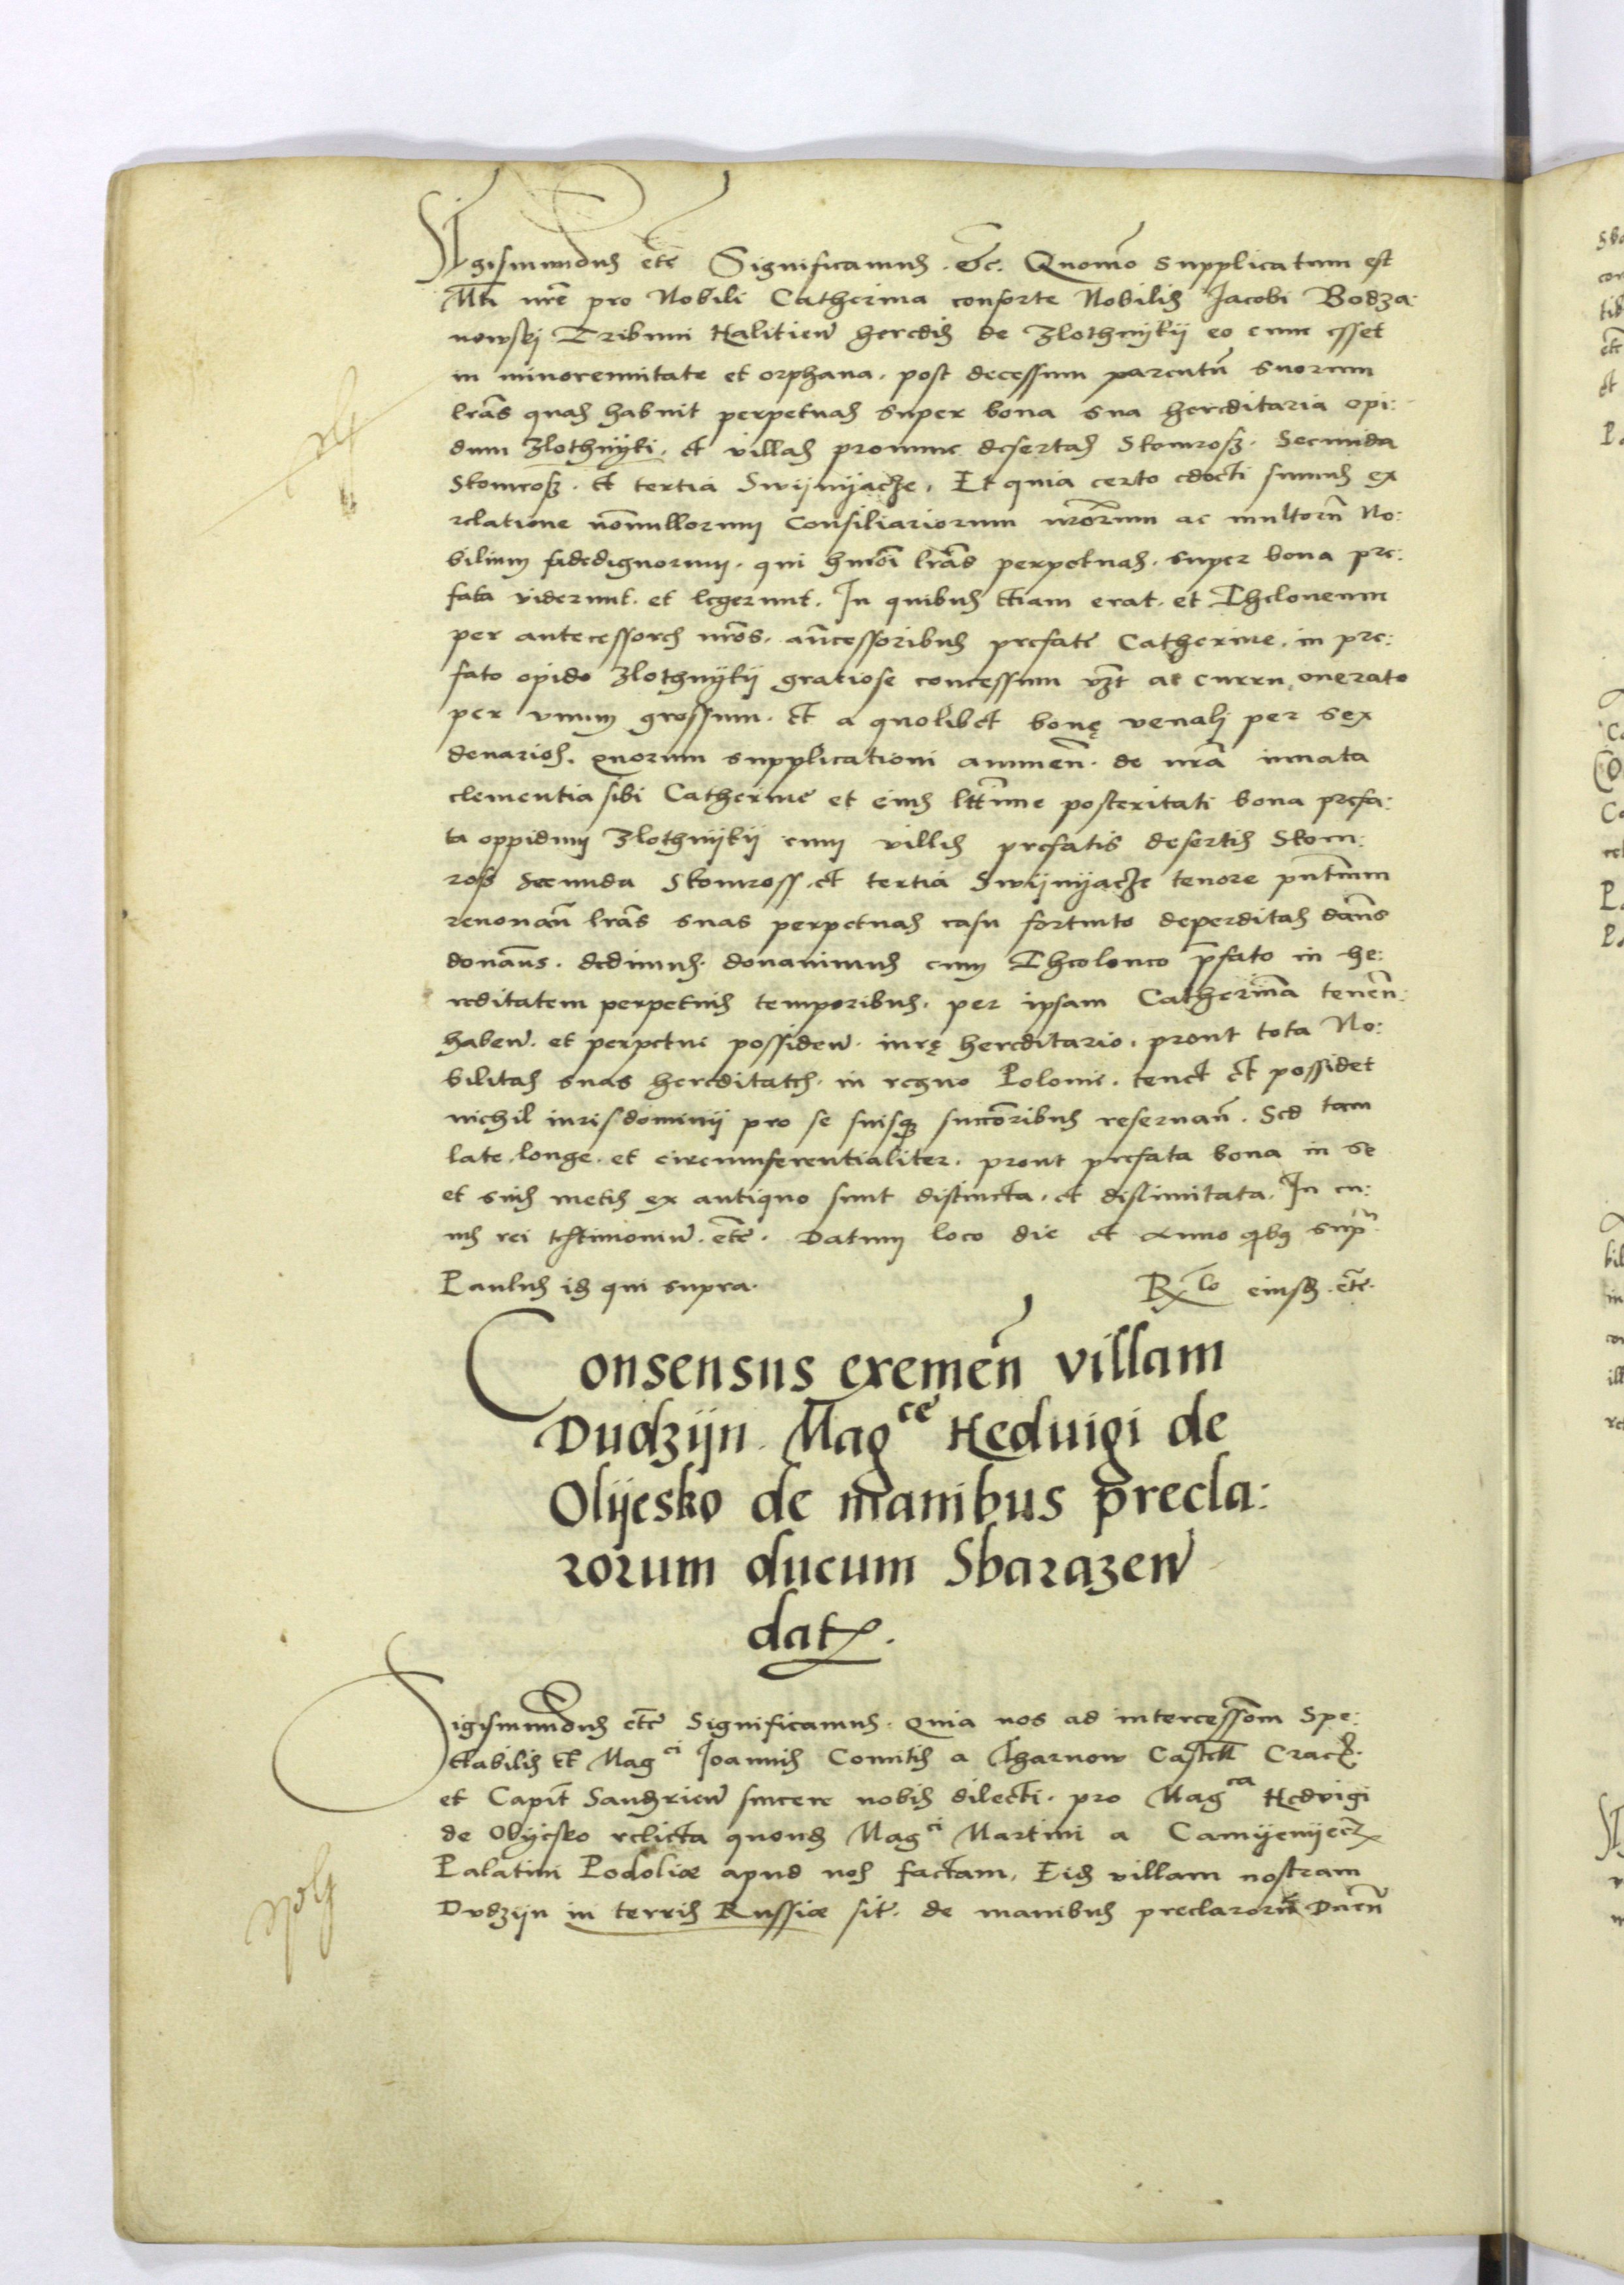 Sigismundus etc Significamus. etc. Quomo supplicatum est
Mti nre pro Nobili Catherina consorte Nobilis Jacobi Bodza:
nowsky Tribuni Halicien heredis de Zlothnykij eo cum esset
in minorennitate et orphana. post decessum parentu suorum
lras quas habuit perpetuas super bona sua hereditaria opi:
dum Zlothnyki. et villas pronunc desertas Skomross. Secunda
Skomross. Et tertia Swijnijache. Et quia certo edocti sumus ex
relatione nonnullorum Consiliariorum nrorum ac multoru No:
bilium fidedignorum. qui hmoi lras perpetuas. super bona pre:
fata viderunt. et legerunt. In quibus etiam erat. et Theloneum
per antecessores nros. antecessoribus prefate Catherine. in pre:
fato opido Zlothnykij gratiose concessum vzt ac curru onerato
per unum grossum. et a quolibet bove venali per sex
denarios. Quorum supplicationi annuen. de nra innata
clementia sibi Catherine et eius lttime posteritati bona prefa:
ta oppidum Zlothnijkij cum villis prefatis desertis Skom:
ross Secunda Skomross. et tertia Swijnijache tenore pntium
renovan lras suas perpetuas casu fortuito deperditas dans
donans. dedimus. donavimus cum Theoloneo prefato in he:
reditatem perpetuis temporibus. per ipsam Catherina tenen:
haben. et perpetui possiden. iure hereditario. prout tota No:
bilitas suas hereditates. in regno Polonie. tenet et possidet
nichil iuris dominii pro se suisque succoribus reservan. Sed tam
late. longe. et circumferentialiter. prout prefata bona in se
et suis metis ex antiquo sunt distincta. et dislimitata. In cu:
ius rei testimonium. etc. Datum loco die et anno qbus supra
Paulus is qui supra. Rlo eiusd. etc.
Consensus exemen villam
Dudzijn. Magce Heduigi de
Olijesko de manibus precla:
rorum ducum Sbarazen
datus.
Sigismundus etc Significamus. Quia nos ad intercessom Spe:
ctabilis et Magci Joannis Comitis a Tharnow Castell Crac.
et Capit Sandrien sincere nobis dilecti. pro Magca Hedvigi
de Olijesko relicta quond Magci Martini a Camijenijecz
Palatini Podoliæ apud nos factam. Eid villam nostram
Dudzijn in terris Russiæ sit. de manibus preclaroru Ducu